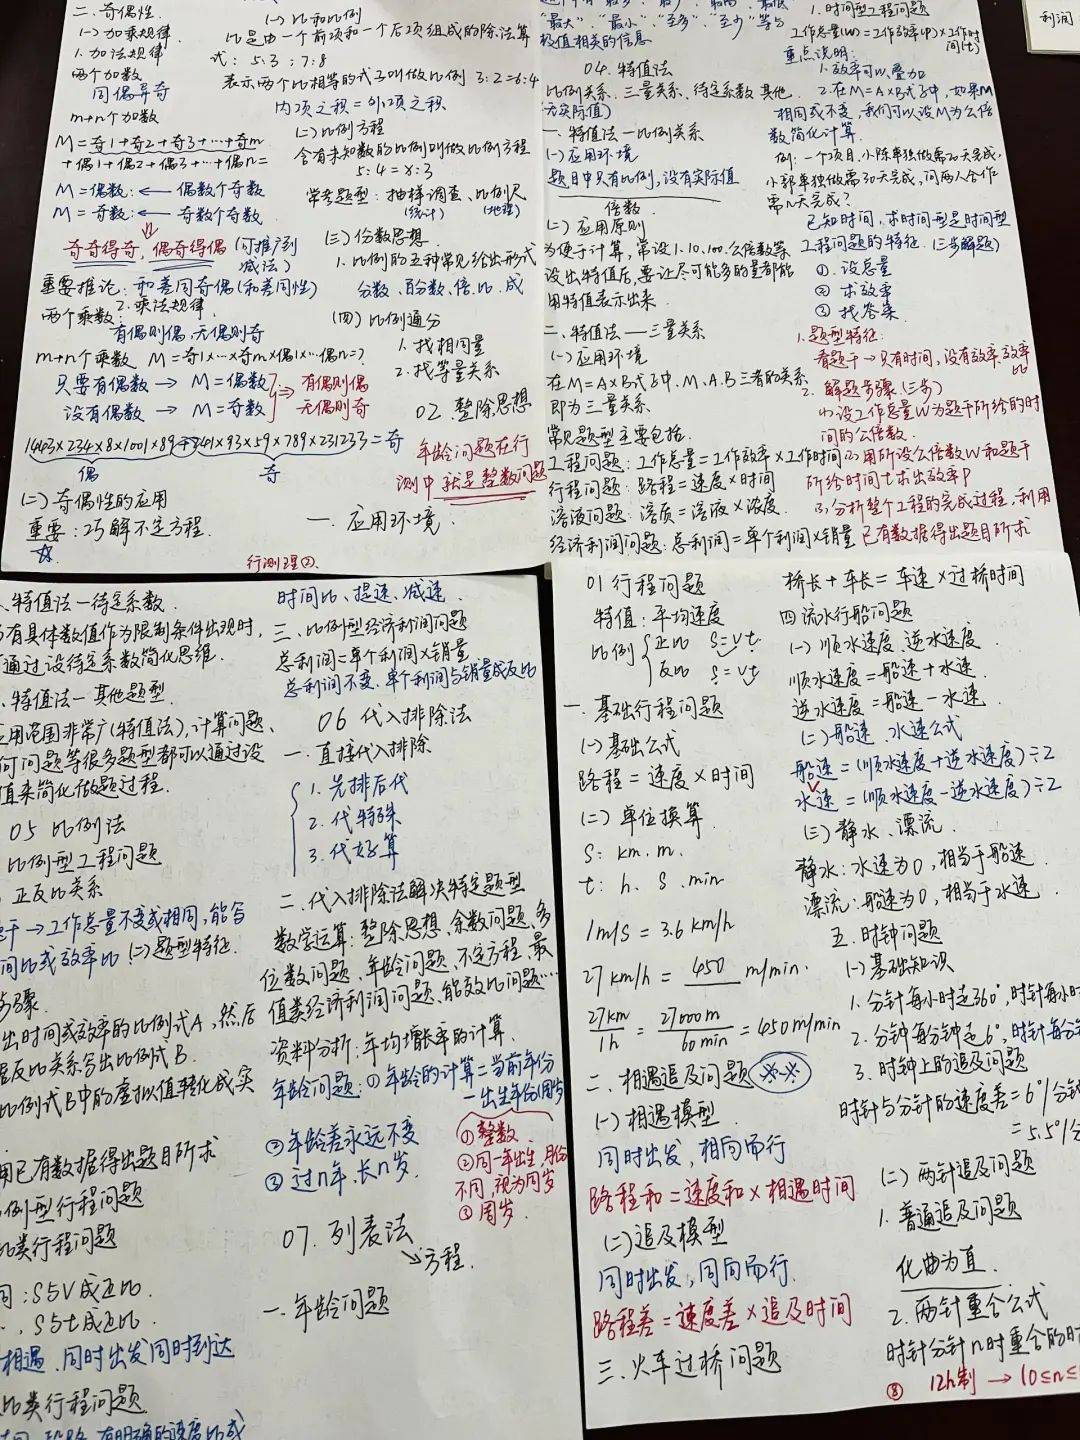 二、奇偶性.
(一)加乘规律.
1.加法规律
两个加数
同偶异奇
m+n个加数
M=奇1+奇2+奇3+…+奇m
+偶1+偶2+偶3+…+偶n=
M=偶数:← 偶数个奇数
M=奇数:← 奇数个奇数
奇奇得奇,偶奇得偶 (可推广到
减法)
重要推论:和差同奇偶(和差同性)
2.乘法规律.
两个乘数:
有偶则偶,无偶则奇
m+n个乘数 M=奇1×…×奇m×偶1×…偶n=?
只要有偶数 → M=偶数
没有偶数 → M=奇数
⇒ 有偶则偶
无偶则奇
1403×234×8×1001×89+3241×93×59×789×231233=奇
偶 奇
(二)奇偶性的应用
重要:巧解不定方程.
(一)比和比例
比是由一个前项和一个后项组成的除法算
式:5:3;7:8
表示两个比相等的式子叫做比例 3:2=6:4
内项之积=外项之积
(二)比例方程
含有未知数的比例叫做比例方程
5:4=x:3
常考题型:抽样调查、比例尺
(统计) (地理)
(三)份数思想.
1.比例的五种常见给出形式
分数、百分数、倍、比、成
(四)比例通分
1.找相同量
2.找等量关系
02.整除思想
年龄问题在行
测中就是整数问题
一.应用环境.
行测理②
"最大"、"最小"、"至多"、"至少"等与
极值相关的信息
04.特值法
比例关系、三量关系、待定系数、其他.
无实际值)
一、特值法—比例关系
(一)应用环境
题目中只有比例,没有实际值
倍数.
(二)应用原则
为便于计算,常设1.10.100.公倍数等
设出特值后,要让尽可能多的量都能
用特值表示出来.
二、特值法——三量关系
(一)应用环境
在M=A×B式子中、M、A、B三者的关系
即为三量关系.
常见题型主要包括.
工程问题:工作总量=工作效率×工作时间
行程问题:路程=速度×时间
溶液问题:溶质=溶液×浓度.
经济利润问题:总利润=单个利润×销量
1.时间型工程问题
工作总量(W)=工作效率(P)×工作时
间(t)
重点说明:
1.效率可以叠加
2.在M=A×B式子中,如果M
相同或不变,我们可以设M为公倍
数简化计算.
例:一个项目,小陈单独做需20天完成,
小郭单独做需30天完成,问两人合作
需几天完成?
已知时间,求时间-型是时间型
工程问题的特征.(三步解题)
①.设总量
② 求效率
③ 找答案
1.题型特征:
看题干→只有时间,没有效率、效率
比
2.解题步骤(三步)
(1)设工作总量W为题干所给的时
间的公倍数.
(2)用所设公倍数W和题干
所给时间t求出效率P
(3)分析整个工程的完成过程,利用
已有数据得出题目所求
利润
、特值法—待定系数.
有具体数值作为限制条件出现时,
通过设待定系数简化思维.
、特值法—其他题型.
应用范围非常广(特值法),计算问题、
何问题等很多题型都可以通过设
值来简化做题过程.
05 比例法
比例型工程问题
正反比关系
干→工作总量不变或相同,能合
间比或效率比 (二)题型特征.
步骤.
出时间或效率的比例式A,然后
反比关系写出比例式B.
比例式B中的虚拟值转化成实
用已有数据得出题目所求
例型行程问题
比类行程问题
同:S与V成正比.
,S与t成正比.
相遇,同时出发同时到达
比类行程问题.
有明确的速度比或
时间比、提速、减速.
三、比例型经济利润问题
总利润=单个利润×销量
总利润不变,单个利润与销量成反比
06 代入排除法
一.直接代入排除
1.先排后代
2.代特殊
3.代好算
二.代入排除法解决特定题型
数学运算:整除思想、余数问题、多
位数问题、年龄问题、不定方程、最
值类经济利润问题、能效比问题…
资料分析:年均增长率的计算.
年龄问题:①年龄的计算=当前年份
-出生年份(周岁)
②年龄差永远不变
③过n年,长n岁.
①整数.
②同一年出生,月份
不同,视为同岁
③周岁.
07.列表法
↘方程.
一.年龄问题
01 行程问题
特值:平均速度
比例 正比 S=vt
反比 S=vt
一.基础行程问题
(一)基础公式
路程=速度×时间
(二)单位换算.
S:km.m.
t:h.s.min
1m/s=3.6km/h
27km/h=450 m/min.
27km/1h=27000m/60min=450m/min
二.相遇追及问题 ※※
(一)相遇模型.
同时出发,相向而行
路程和=速度和×相遇时间
(二)追及模型
同时出发,同向而行.
路程差=速度差×追及时间
三.火车过桥问题
桥长+车长=车速×过桥时间
四.流水行船问题
(一)顺水速度、逆水速度.
顺水速度=船速+水速.
逆水速度=船速-水速.
(二)船速、水速公式
船速=(顺水速度+逆水速度)÷2
水速=(顺水速度-逆水速度)÷2
(三)静水、漂流.
静水:水速为0,相当于船速.
漂流:船速为0,相当于水速.
五.时钟问题
(一)基础知识
1.分针每小时走360°,时针每小时
2.分钟每分钟走6°,时针每分
3.时钟上的追及问题
时针与分针的速度差=6°/分钟
=5.5°/分
(二)两针追及问题
1.普通追及问题
化曲为直.
2.两针重合公式
时针分针n时重合的时
⑧ 12h制→(0≤n≤